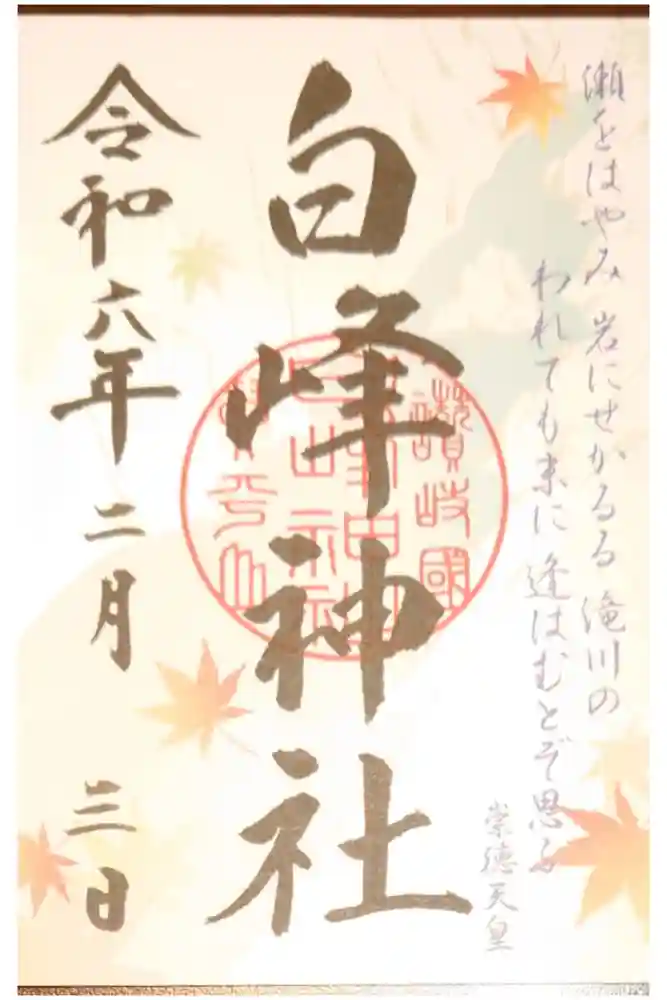 瀬をはやみ 岩にせかるる 滝川の
われても末に 逢はむとぞ思ふ
崇徳天皇
白峰神社
讃岐國
令和六年二月三日